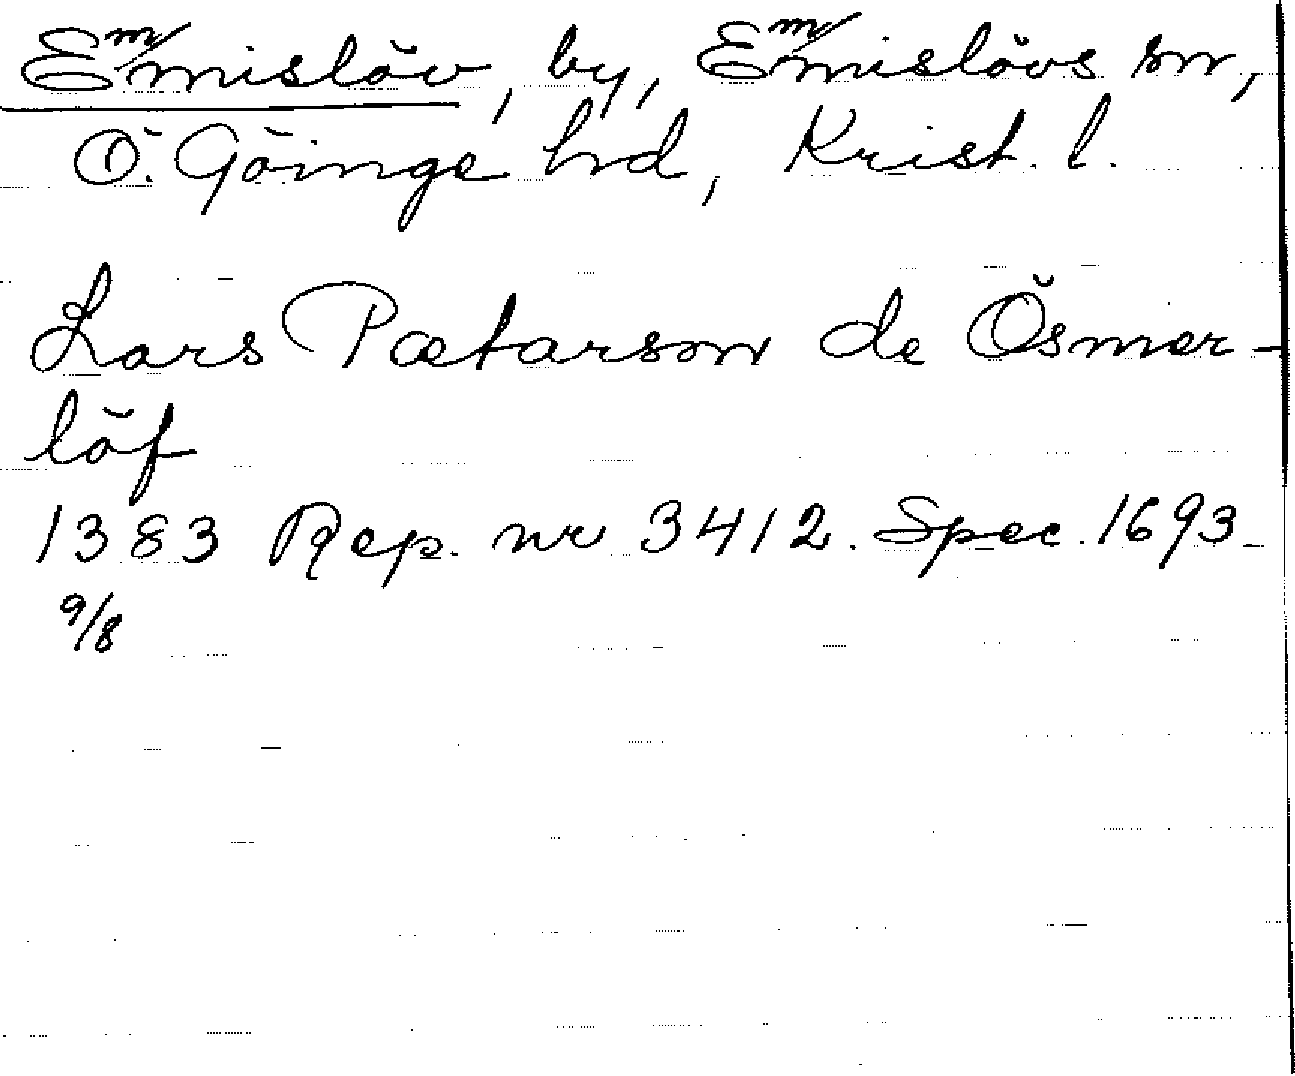 Emmislöv, by, Emmislövs sn,
Ö. Göinge hd, Krist. l.
Lars Pætarson de Ösmer-
löf
1383 Rep. nr 3412. Spec. 1693
9/8